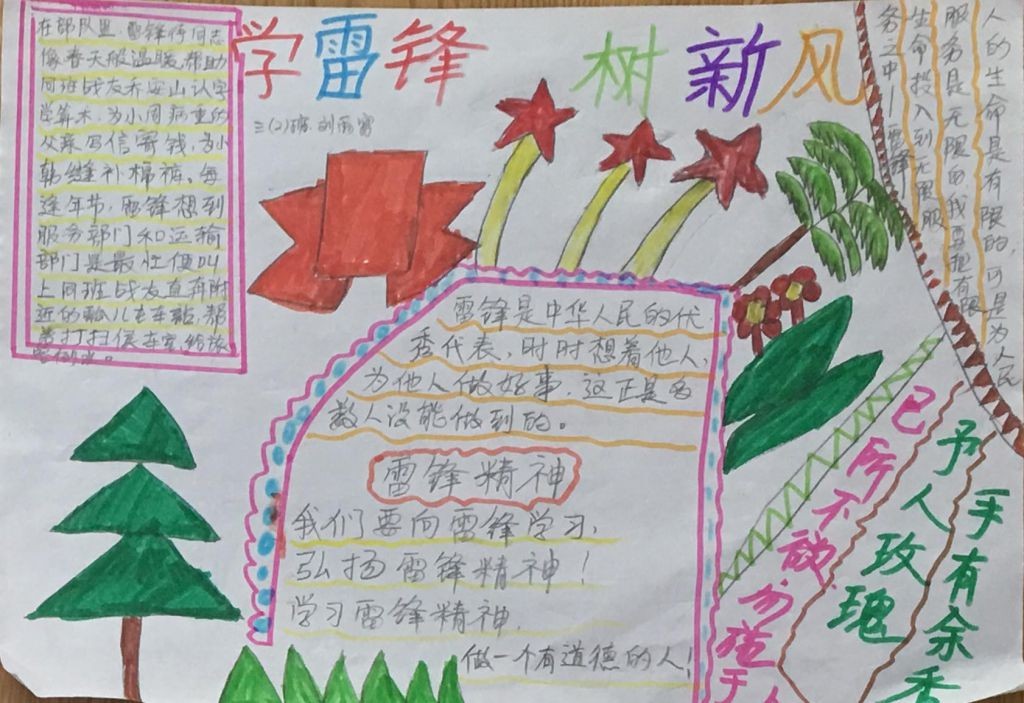 学雷锋 树新风
三(2)班
在部队里,雷锋待同志
像春天般温暖,帮助
同班战友乔安山认字
学算术,为小周病重的
父亲写信寄钱,为小
韩缝补棉裤。每
逢年节,雷锋想到
服务部门和运输
部门是最忙便叫
上同班战友直奔附
近的瓢儿屯车站,帮
着打扫候车室,给旅
人的生命是有限的,可是为人民
服务是无限的我要把有限
生命投入到无限服
务之中——雷锋
雷锋是中华人民的优
秀代表,时时想着他人,
为他人做好事,这正是多
数人没能做到的。
雷锋精神
我们要向雷锋学习,
弘扬雷锋精神!
学习雷锋精神,
做一个有道德的人!
予人玫瑰
手有余香
己所不欲勿施于人